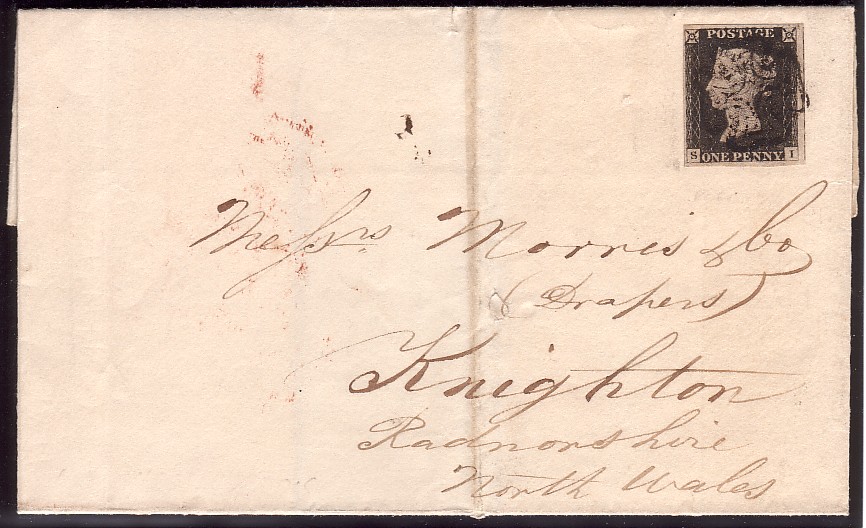 POSTAGE
S ONE PENNY I
Messrs Morris & Co
(Drapers)
Knighton
Radnorshire
North Wales